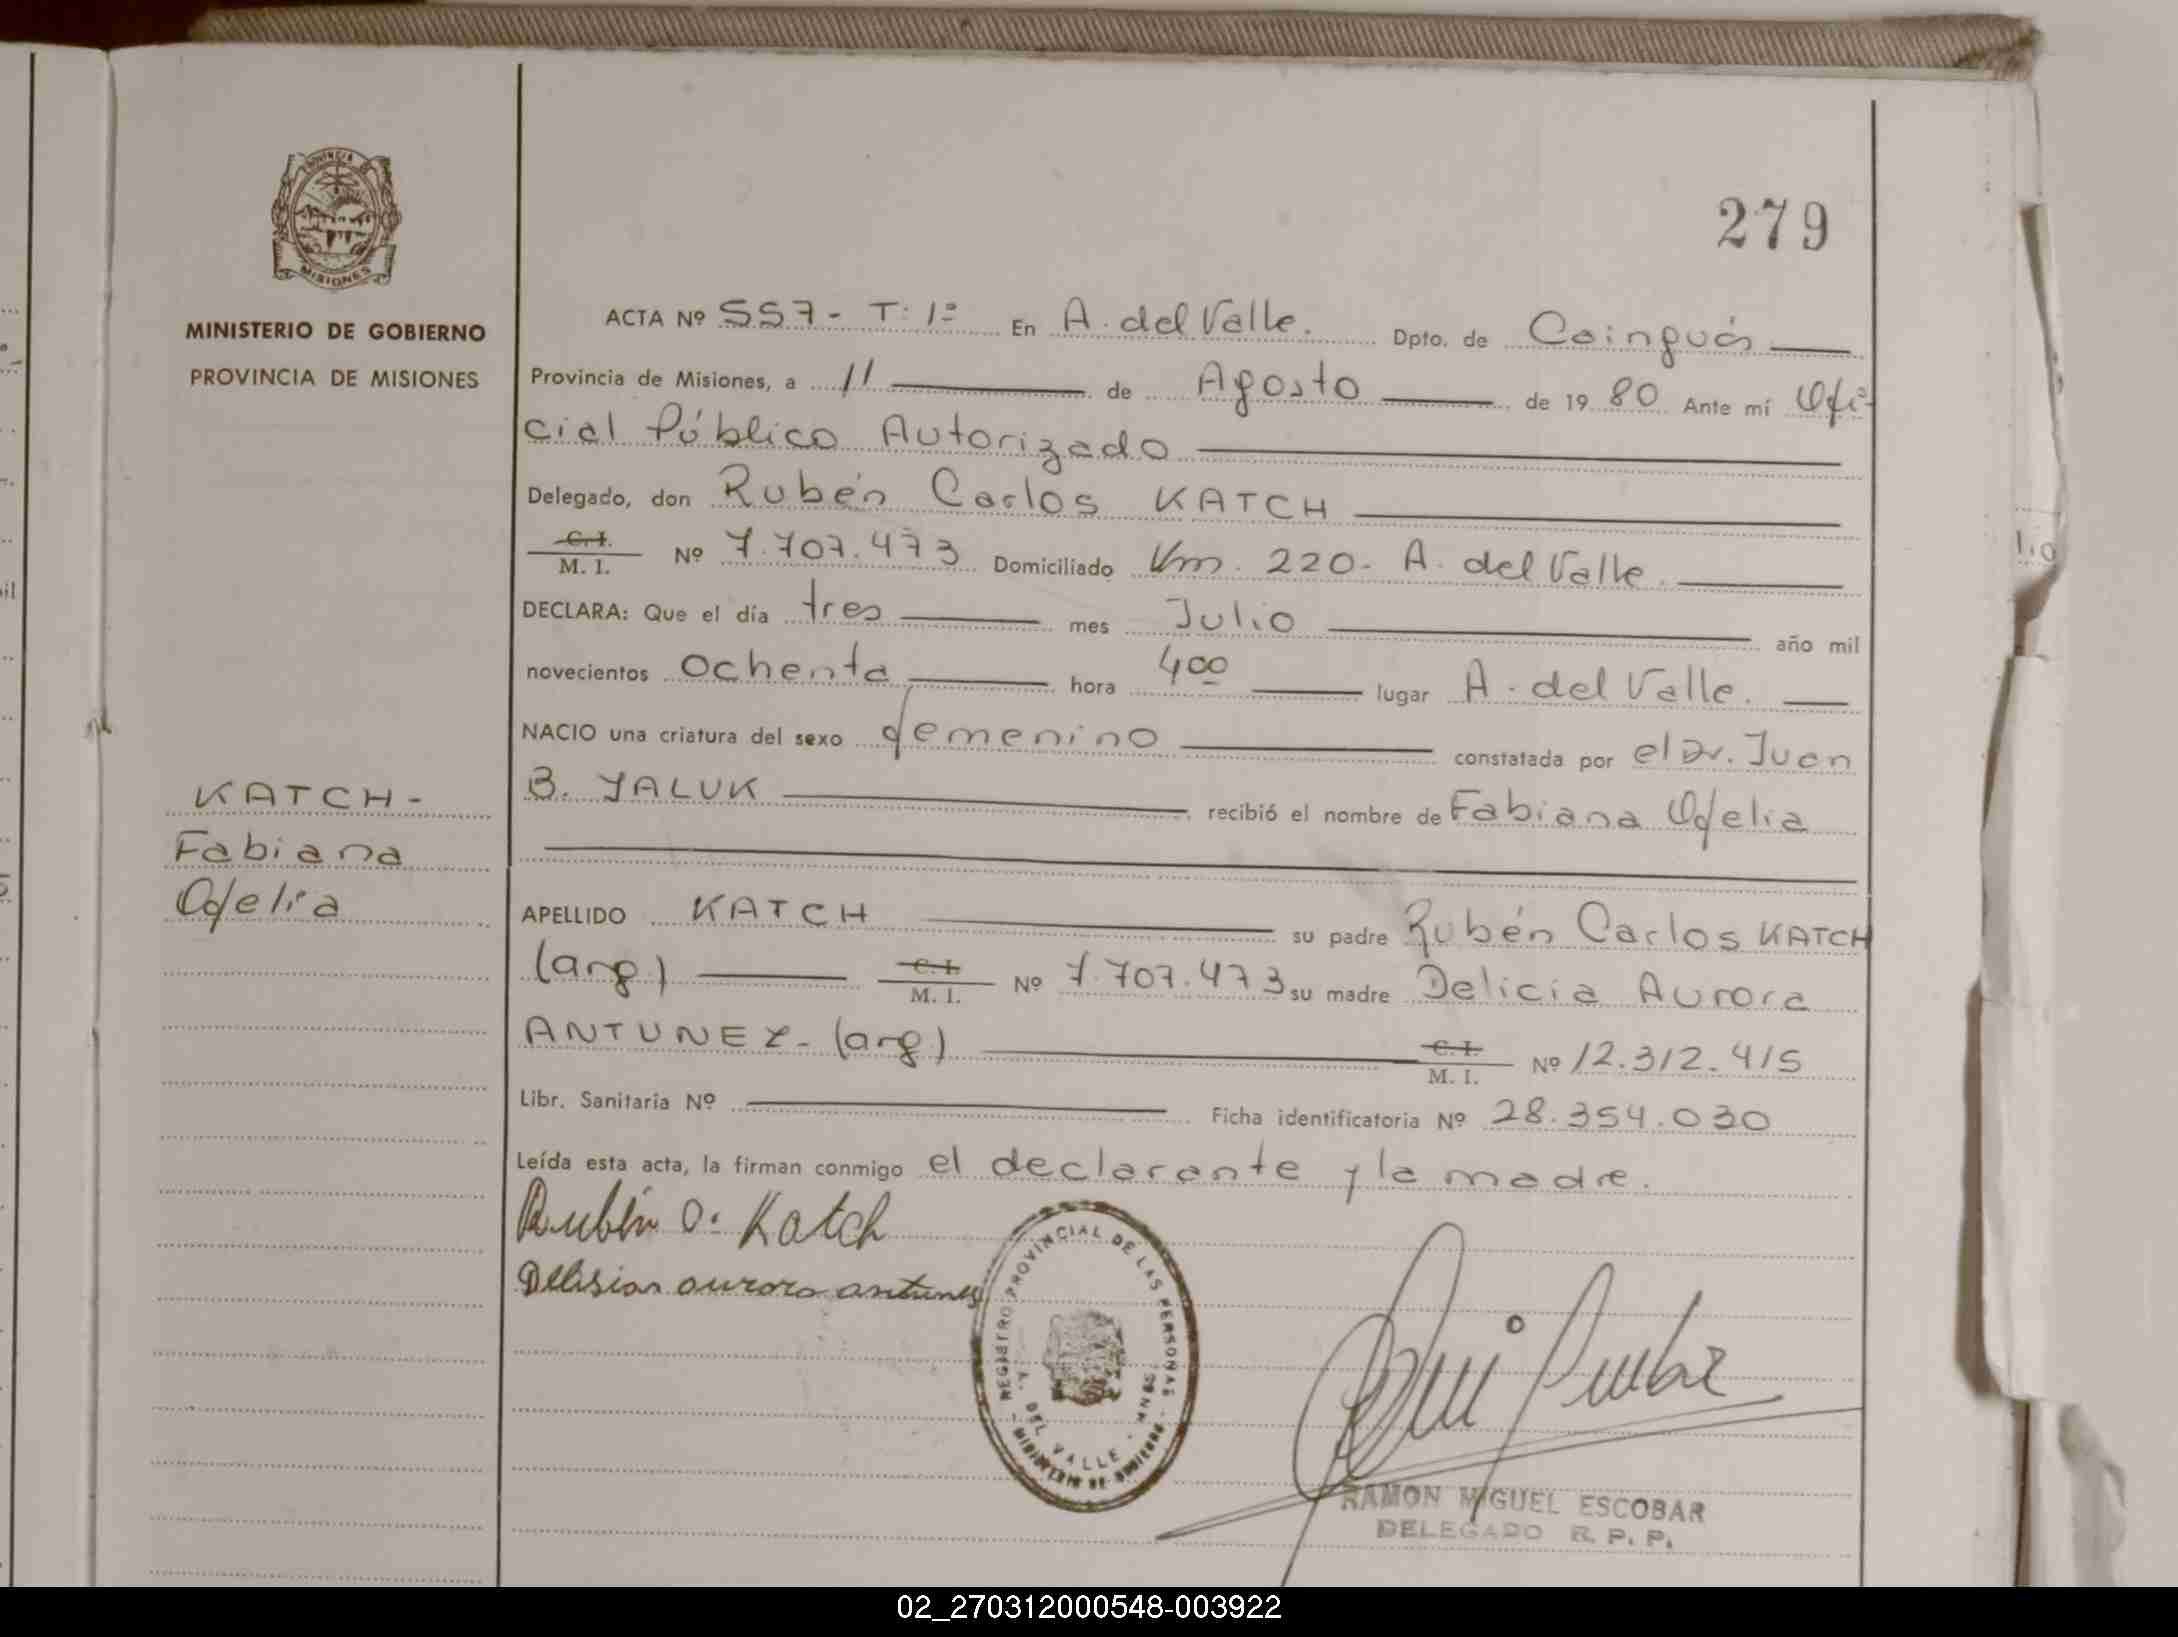 279
MINISTERIO DE GOBIERNO
PROVINCIA DE MISIONES
KATCH-
Fabiana
Ofelia
ACTA Nº 557- T: 1º En A. del Valle. Dpto. de Cainguás
Provincia de Misiones, a 11 de Agosto de 1980 Ante mí Ofi-
cial Público Autorizado
Delegado, don Rubén Carlos KATCH
C.I. M. I. Nº 7.707.473 Domiciliado Km. 220- A. del Valle.
DECLARA: Que el día tres mes Julio año mil
novecientos ochenta hora 4oo lugar A. del Valle.
NACIO una criatura del sexo femenino constatada por el Dr. Juan
B. YALUK recibió el nombre de Fabiana Ofelia
APELLIDO KATCH su padre Rubén Carlos KATCH
(arg) C.I. M. I. Nº 7.707.473 su madre Delicia Aurora
ANTUNEZ- (arg) C.I. M. I. Nº 12.312.415
Libr. Sanitaria Nº Ficha identificatoria Nº 28.354.030
Leída esta acta, la firman conmigo el declarante y la madre.
Rubén O. Katch
aurora antunes
REGISTRO PROVINCIAL DE LAS PERSONAS
A. DEL VALLE - MNES.
MINISTERIO DE GOBIERNO
RAMON MIGUEL ESCOBAR
DELEGADO R. P. P.
02_270312000548-003922